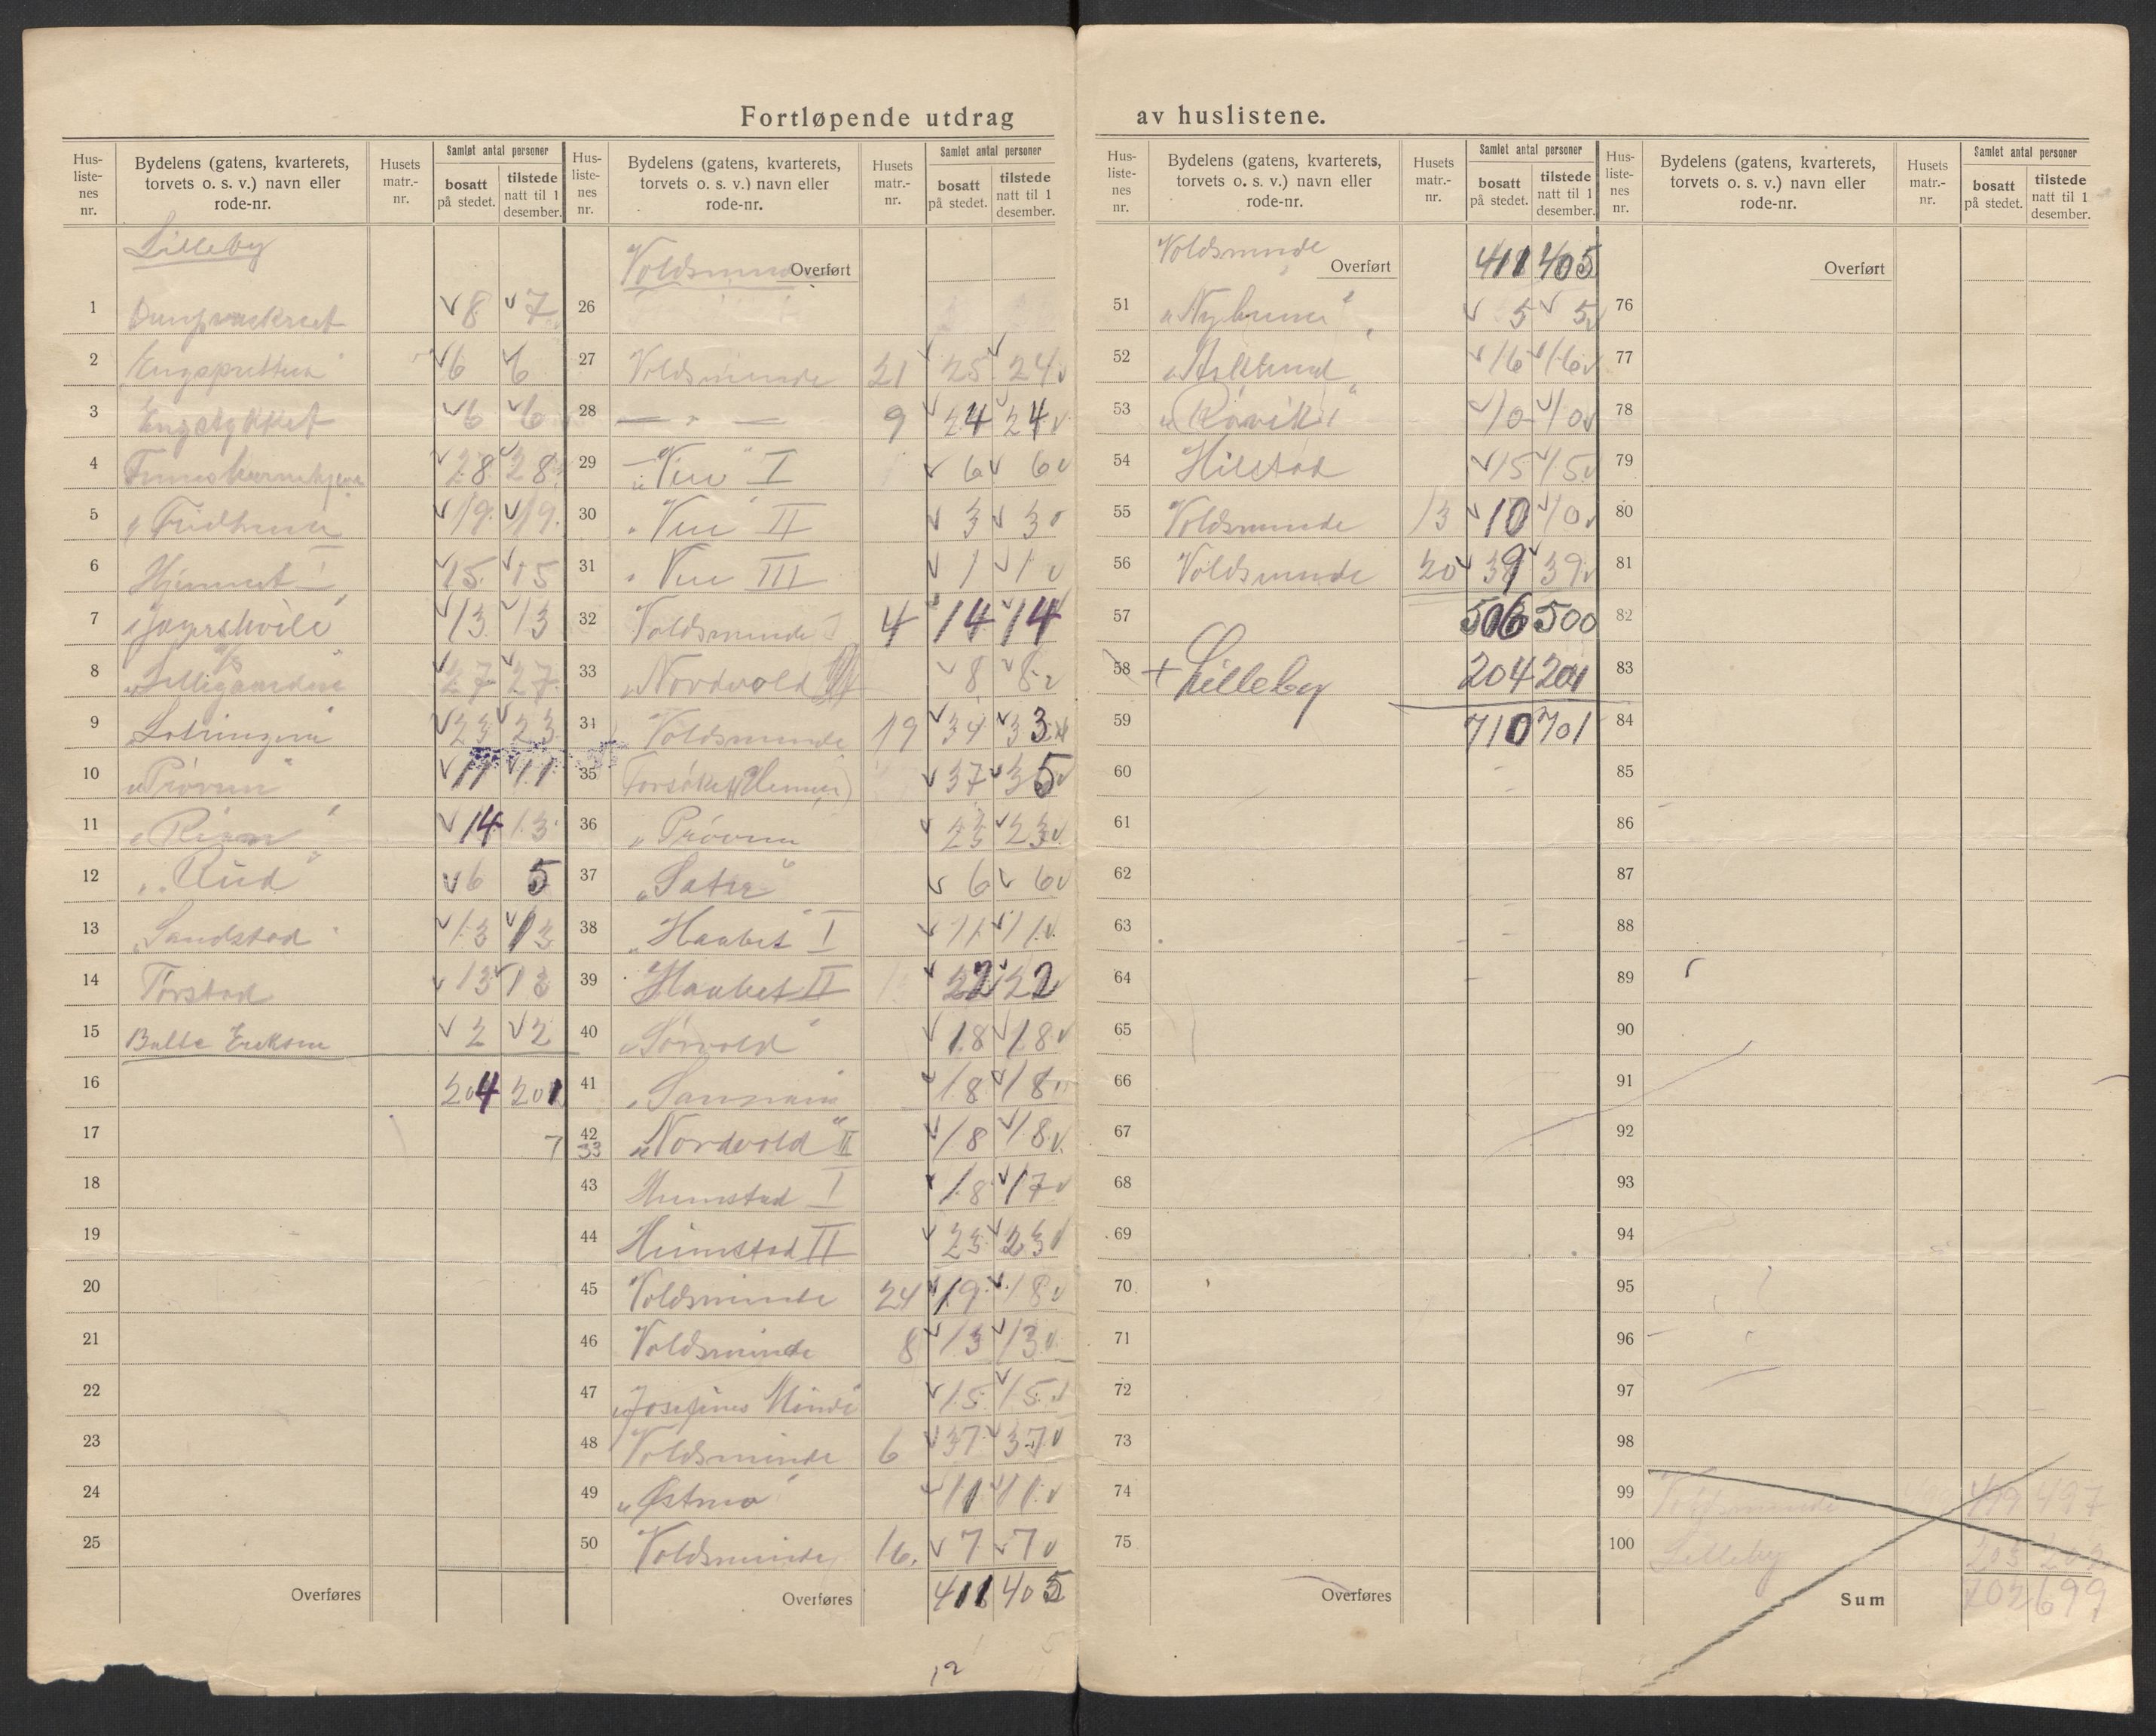 Fortløpende utdrag av huslistene.
Hus-liste-nes nr. | Bydelens (gatens, kvarterets, torvets o. s. v.) navn eller rode-nr. | Husets matr.-nr. | Samlet antal personer bosatt på stedet. | tilstede natt til 1 desember.
Lilleby
1 Dampvaskeriet 8 7
2 6 6
3 Engstykket 6 6
4 28 28
5 19 19
6 Hjemmet I 15 15
7 13 13
8 27 27
9 Lotringen 23 23
10 Prøven 11 11
11 14 13
12 "Rud" 6 5
13 Sandstad 13 13
14 Torstad 13 13
15 Eriksen 2 2
16 204 201
17 7
18
19
20
21
22
23
24
25
Overføres
Hus-liste-nes nr. | Bydelens (gatens, kvarterets, torvets o. s. v.) navn eller rode-nr. | Husets matr.-nr. | Samlet antal personer bosatt på stedet. | tilstede natt til 1 desember.
Voldsminde Overført
26
27 Voldsminde 21 25 24
28 — " — 9 24 24
29 I 6 6
30 II 3 3
31 III 1 1
32 Voldsminde 4 14 14
33 "Nordvold 8 8
34 Voldsminde 19 34 33
35 37 35
36 "Prøven 23 23
37 "Sæter" 6 6
38 "Haabet" I 11 11
39 Haabet II 22 22
40 "Sørvold" 18 18
41 18 18
42 33 "Nordvold" II 18 18
43 Heimstad I 18 17
44 Heimstad II 23 23
45 Voldsminde 24 19 18
46 Voldsminde 8 13 13
47 "Josefines Minde" 15 15
48 Voldsminde 6 37 37
49 "Østmo" 11 11
50 Voldsminde 16. 7 7
Overføres 411 405
12
Hus-liste-nes nr. | Bydelens (gatens, kvarterets, torvets o. s. v.) navn eller rode-nr. | Husets matr.-nr. | Samlet antal personer bosatt på stedet. | tilstede natt til 1 desember.
Voldsminde Overført 411 405
51 5 5
52 16 16
53 "Rørvik" 10 10
54 15 15
55 Voldsminde 13 10 10
56 Voldsminde 20 39 39
57 506 500
58 + Lilleby 204 201
59 710 701
60
61
62
63
64
65
66
67
68
69
70
71
72
73
74
75
Overføres
Hus-liste-nes nr. | Bydelens (gatens, kvarterets, torvets o. s. v.) navn eller rode-nr. | Husets matr.-nr. | Samlet antal personer bosatt på stedet. | tilstede natt til 1 desember.
Overført
76
77
78
79
80
81
82
83
84
85
86
87
88
89
90
91
92
93
94
95
96
97
98
99 Voldsminde 499 497
100 Lilleby 203 202
Sum 702 699